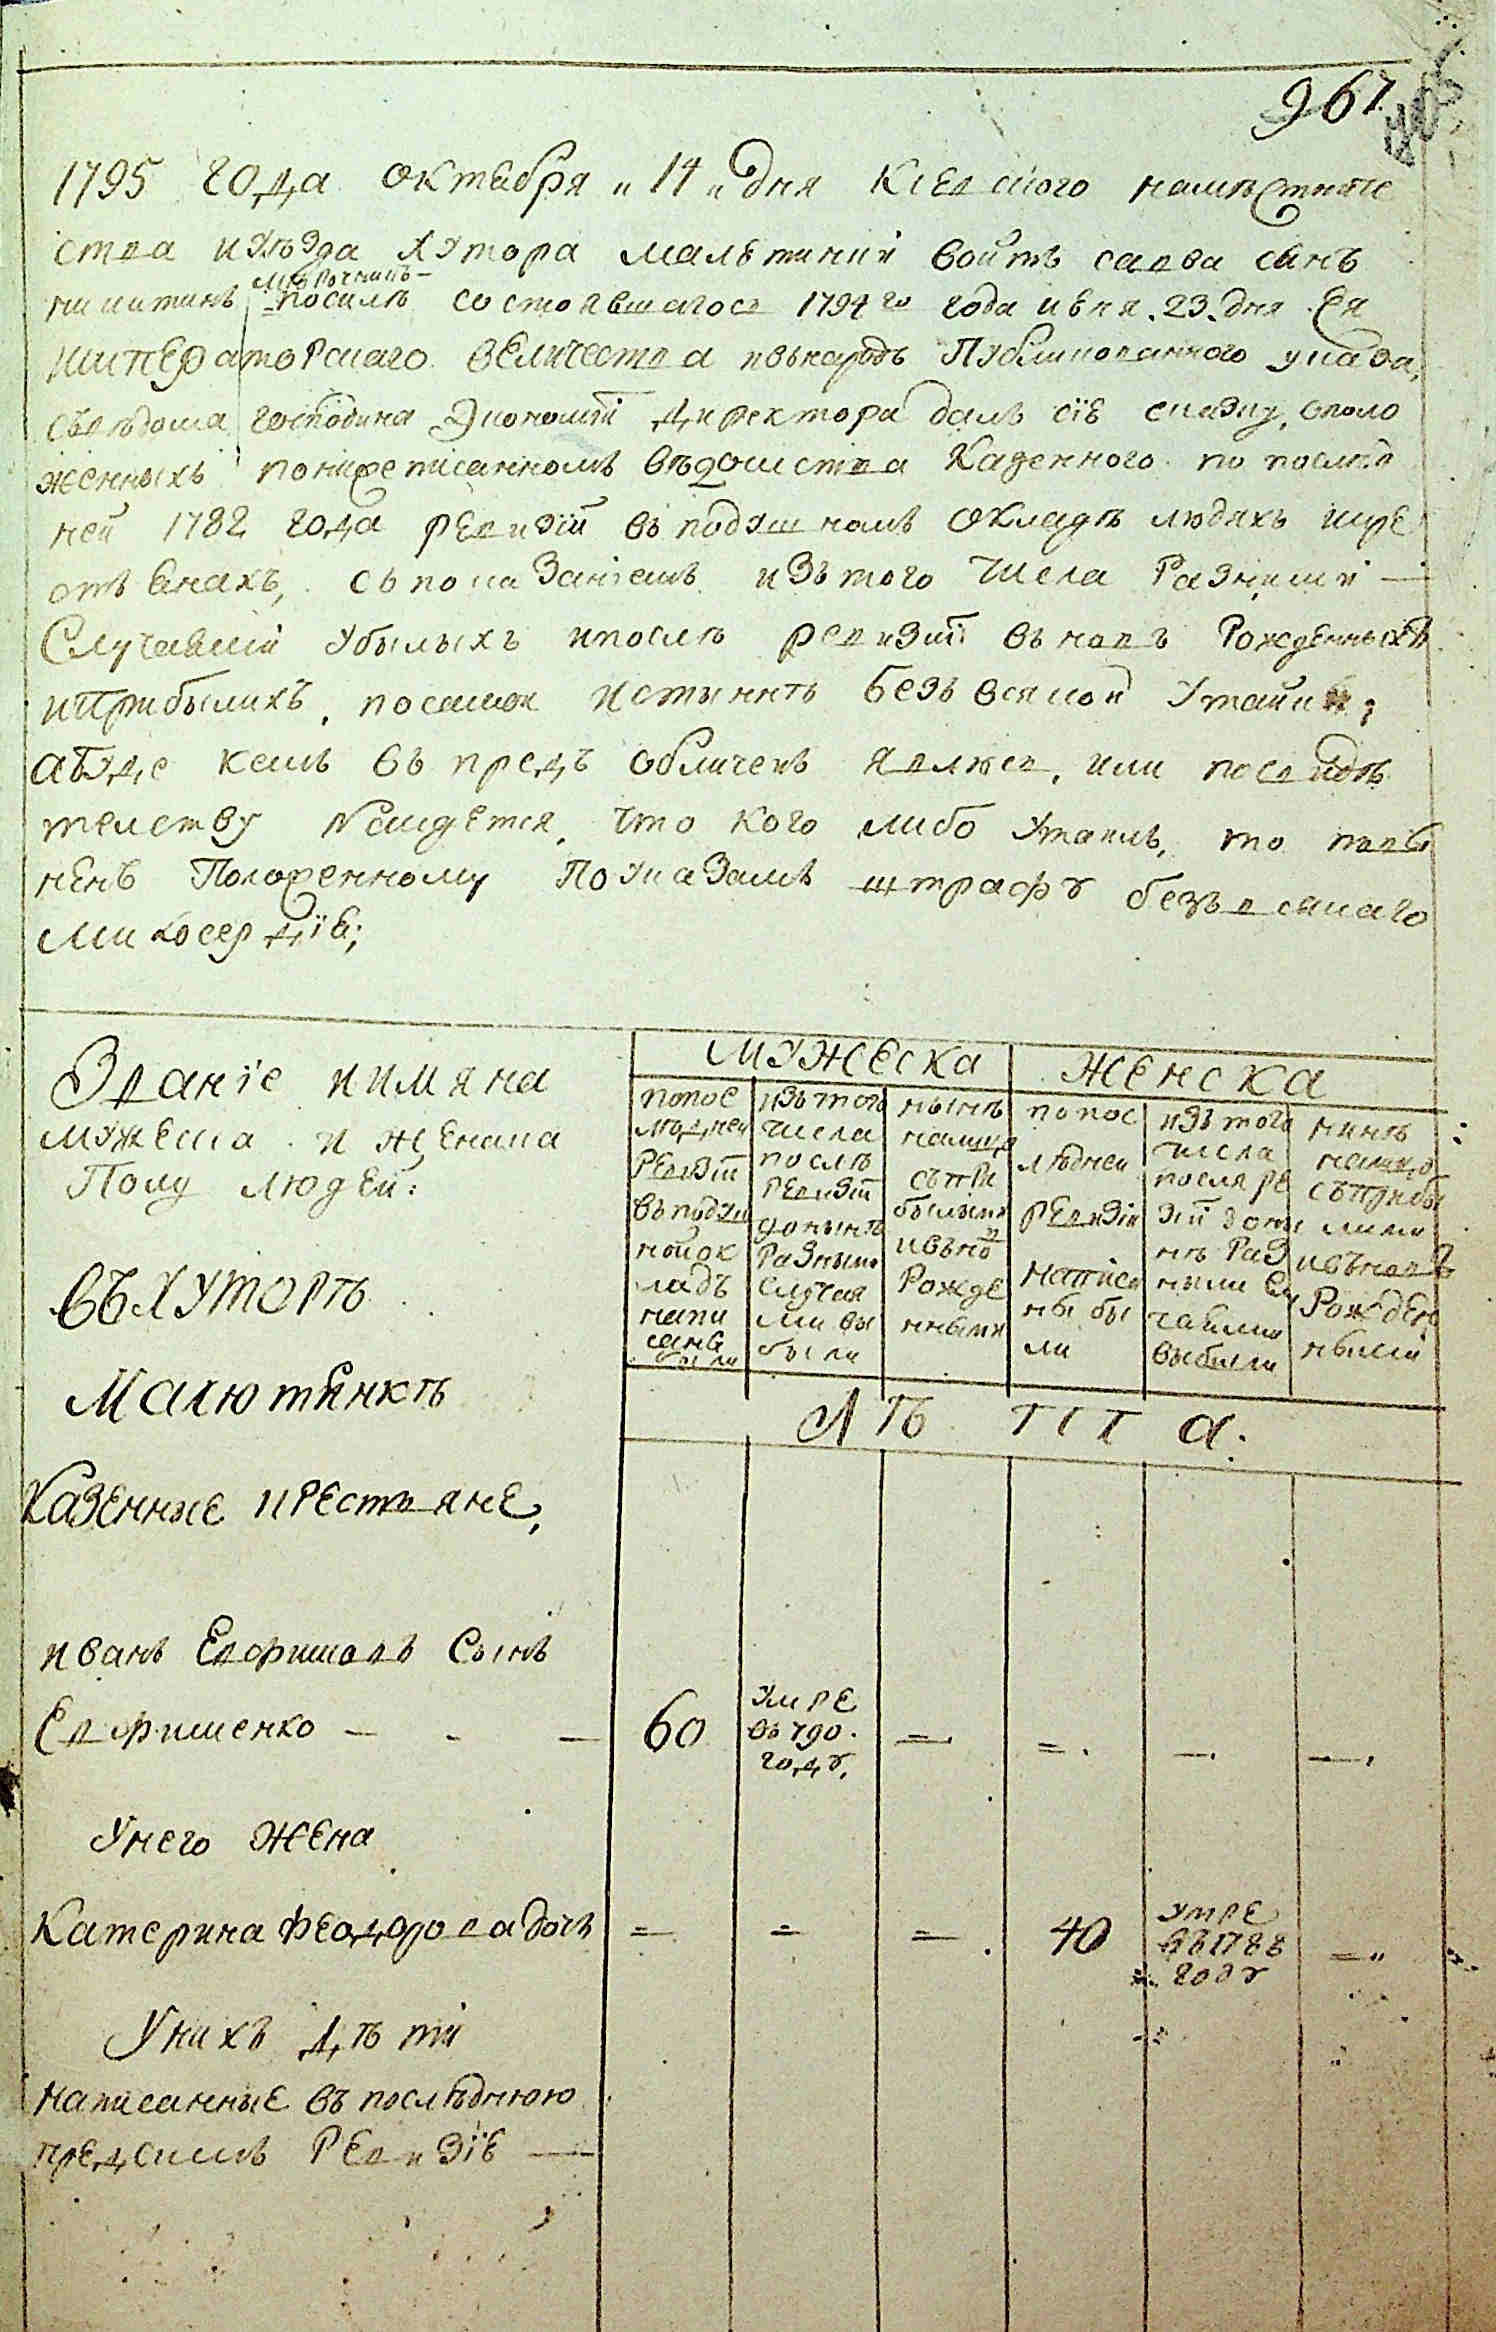 967
1795 года октября „ 14 „ дня Киевского наместниче
ства иуѣзда хутора малютинки войтъ савва сынъ
никитинъ посилѣ состоявшагося 1794 го года июня .23. дня Ея
императорскаго величества ивънародъ Публикованного указа,
съвѣдома господина Экономїи директора далъ сїе сказку, ополо
женныхъ понижеписанномъ вѣдомства Казенного по послѣд
ней 1782 года ревизїи въ подушномъ окладѣ людяхъ икре
стьянахъ, съ показанїемъ изътого числа Разними —
Случаями убылыхъ ипослѣ ревизїи вновь Рожденныхъ
иприбылихъ, посамой истыннѣ безъ всякой Утайки;
абуде кемъ въ предъ обличенъ явлюся, или посвидѣ
телству Найдется, что кого либо Утаилъ, то пови
ненъ Положенному По Указамъ штрафу безъ всякаго
милосердїя;
Званїе иимяна
мужеска и женска
Полу людей:
Мужеска
Женска
попос
лѣдней
Ревизїи
въподуш
номок
ладѣ
напи
саны
были
изътого
числа
послѣ
Ревизїи
донынѣ
Разными
случая
ми вы
были
нынѣ
налицо
съпри
былыми
ивъно
в
Рожде
нными
попос
лѣдней
Ревизїи
написа
ны бы
ли
изътого
числа
посля ре
зїи дони
нѣ Раз
ними слу
чаями
выбыли
нинѣ
налицо
съприбы
лими
ивъновъ
Рожден
ными
Лѣ та.
въхуторѣ
Малютинкѣ
Казенние крестьяне,
иванъ Евфимовъ Сынъ
Евфименко — - — 60 умре въ 790. году, =. =. —. —.
Унего жена
Катерина Феодорова дочь = = =. 40 умре въ 1788 году =„
Унихъ дѣти
написанные въ послѣднюю
предсимъ Ревизїе —